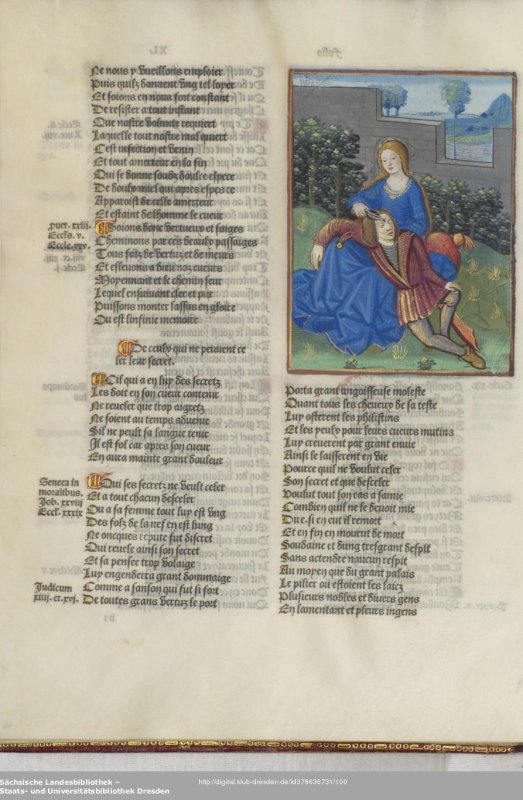 Ne nous y vueillons employer
Puis quilz donnent vng tel loyer
Et soions en nous fort constant
De resister a tout instant
Que nostre volunte requiert
Laquelle tout nostre mal quiert
Cest infection et venin
Et tout amerteur en sa fin
Qui se donne soubz doulce espece
De doulx miel qui apres espesce
Apparoist de celle amerteur
Et estaint de lhomme le cueur
prouer. xxiii.
Eccls. v.
Eccle. xxv.
Soions donc vertueux et saiges
Cheminons par ces beaulx passaiges
Tous folz de vertuz et de meurs
Et esleuons a dieu noz cueurs
Moyennant et le chemin seur
Lequel ensuiuant cler et pur
Puissons monter lassus en gloire
Ou est linfinie memoire
De ceulx qui ne peuuent ce
ler leur secret.
Cil qui a en luy des secretz
Les doit en son cueur contenir
Ne reueler que trop aigretz
Ne soient au temps aduenir
Sil ne peult sa langue tenir
Il est fol car apres son cueur
En aura mainte grant douleur
Seneca in
moralibus.
Job. xxvii
Eccl. xxxix
Qui ses secretz ne veult celer
Et a tout chacun desceler
Ou a sa femme tout luy est vng
Des folz de la nef en est lung
Ne oncques repute fut discret
Qui reuele ainsi son secret
Et sa pensee trop volaige
Luy engendrera grant dommaige
Judicum
xiiii. et. xvi.
Comme a sanson qui fut si fort
De toutes grans vertuz le port
Porta grant angoisseuse moleste
Quant tous les cheueux de sa teste
Luy osterent les philistins
Et les yeulx pour leurs cueurs mutins
Luy creuerent par grant enuie
Ainsi le laisserent en vie
Pource quil ne voulut celer
Son secret et que desceler
Voulut tout son cas a samie
Combien quil ne le deuoit mie
Dire. si en eut il remort
Et en fin en mourut de mort
Soudaine et dung tresgrant despit
Sans actendre naucun respit
Au moyen que du grant palais
Le pilier ou estoient ses laicz
Plusieurs nobles et diuers gens
En lamentant et pleurs ingens
Sächsische Landesbibliothek –
Staats- und Universitätsbibliothek Dresden
http://digital.slub-dresden.de/id378636731/100